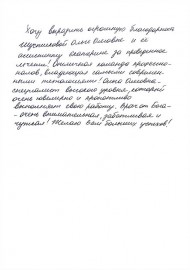 Хочу выразить огромную благодарность
Ольге Олеговне и её
ассистенту Екатерине за проведенное
лечение! Отличная команда професси-
оналов, владеющая самыми современ-
ными технологиями! Ольга Олеговна -
специалист высокого уровня, который
очень ювелирно и кропотливо
выполняет свою работу. Врач от бога -
- очень внимательная, заботливая и
чуткая! Желаю Вам больших успехов!